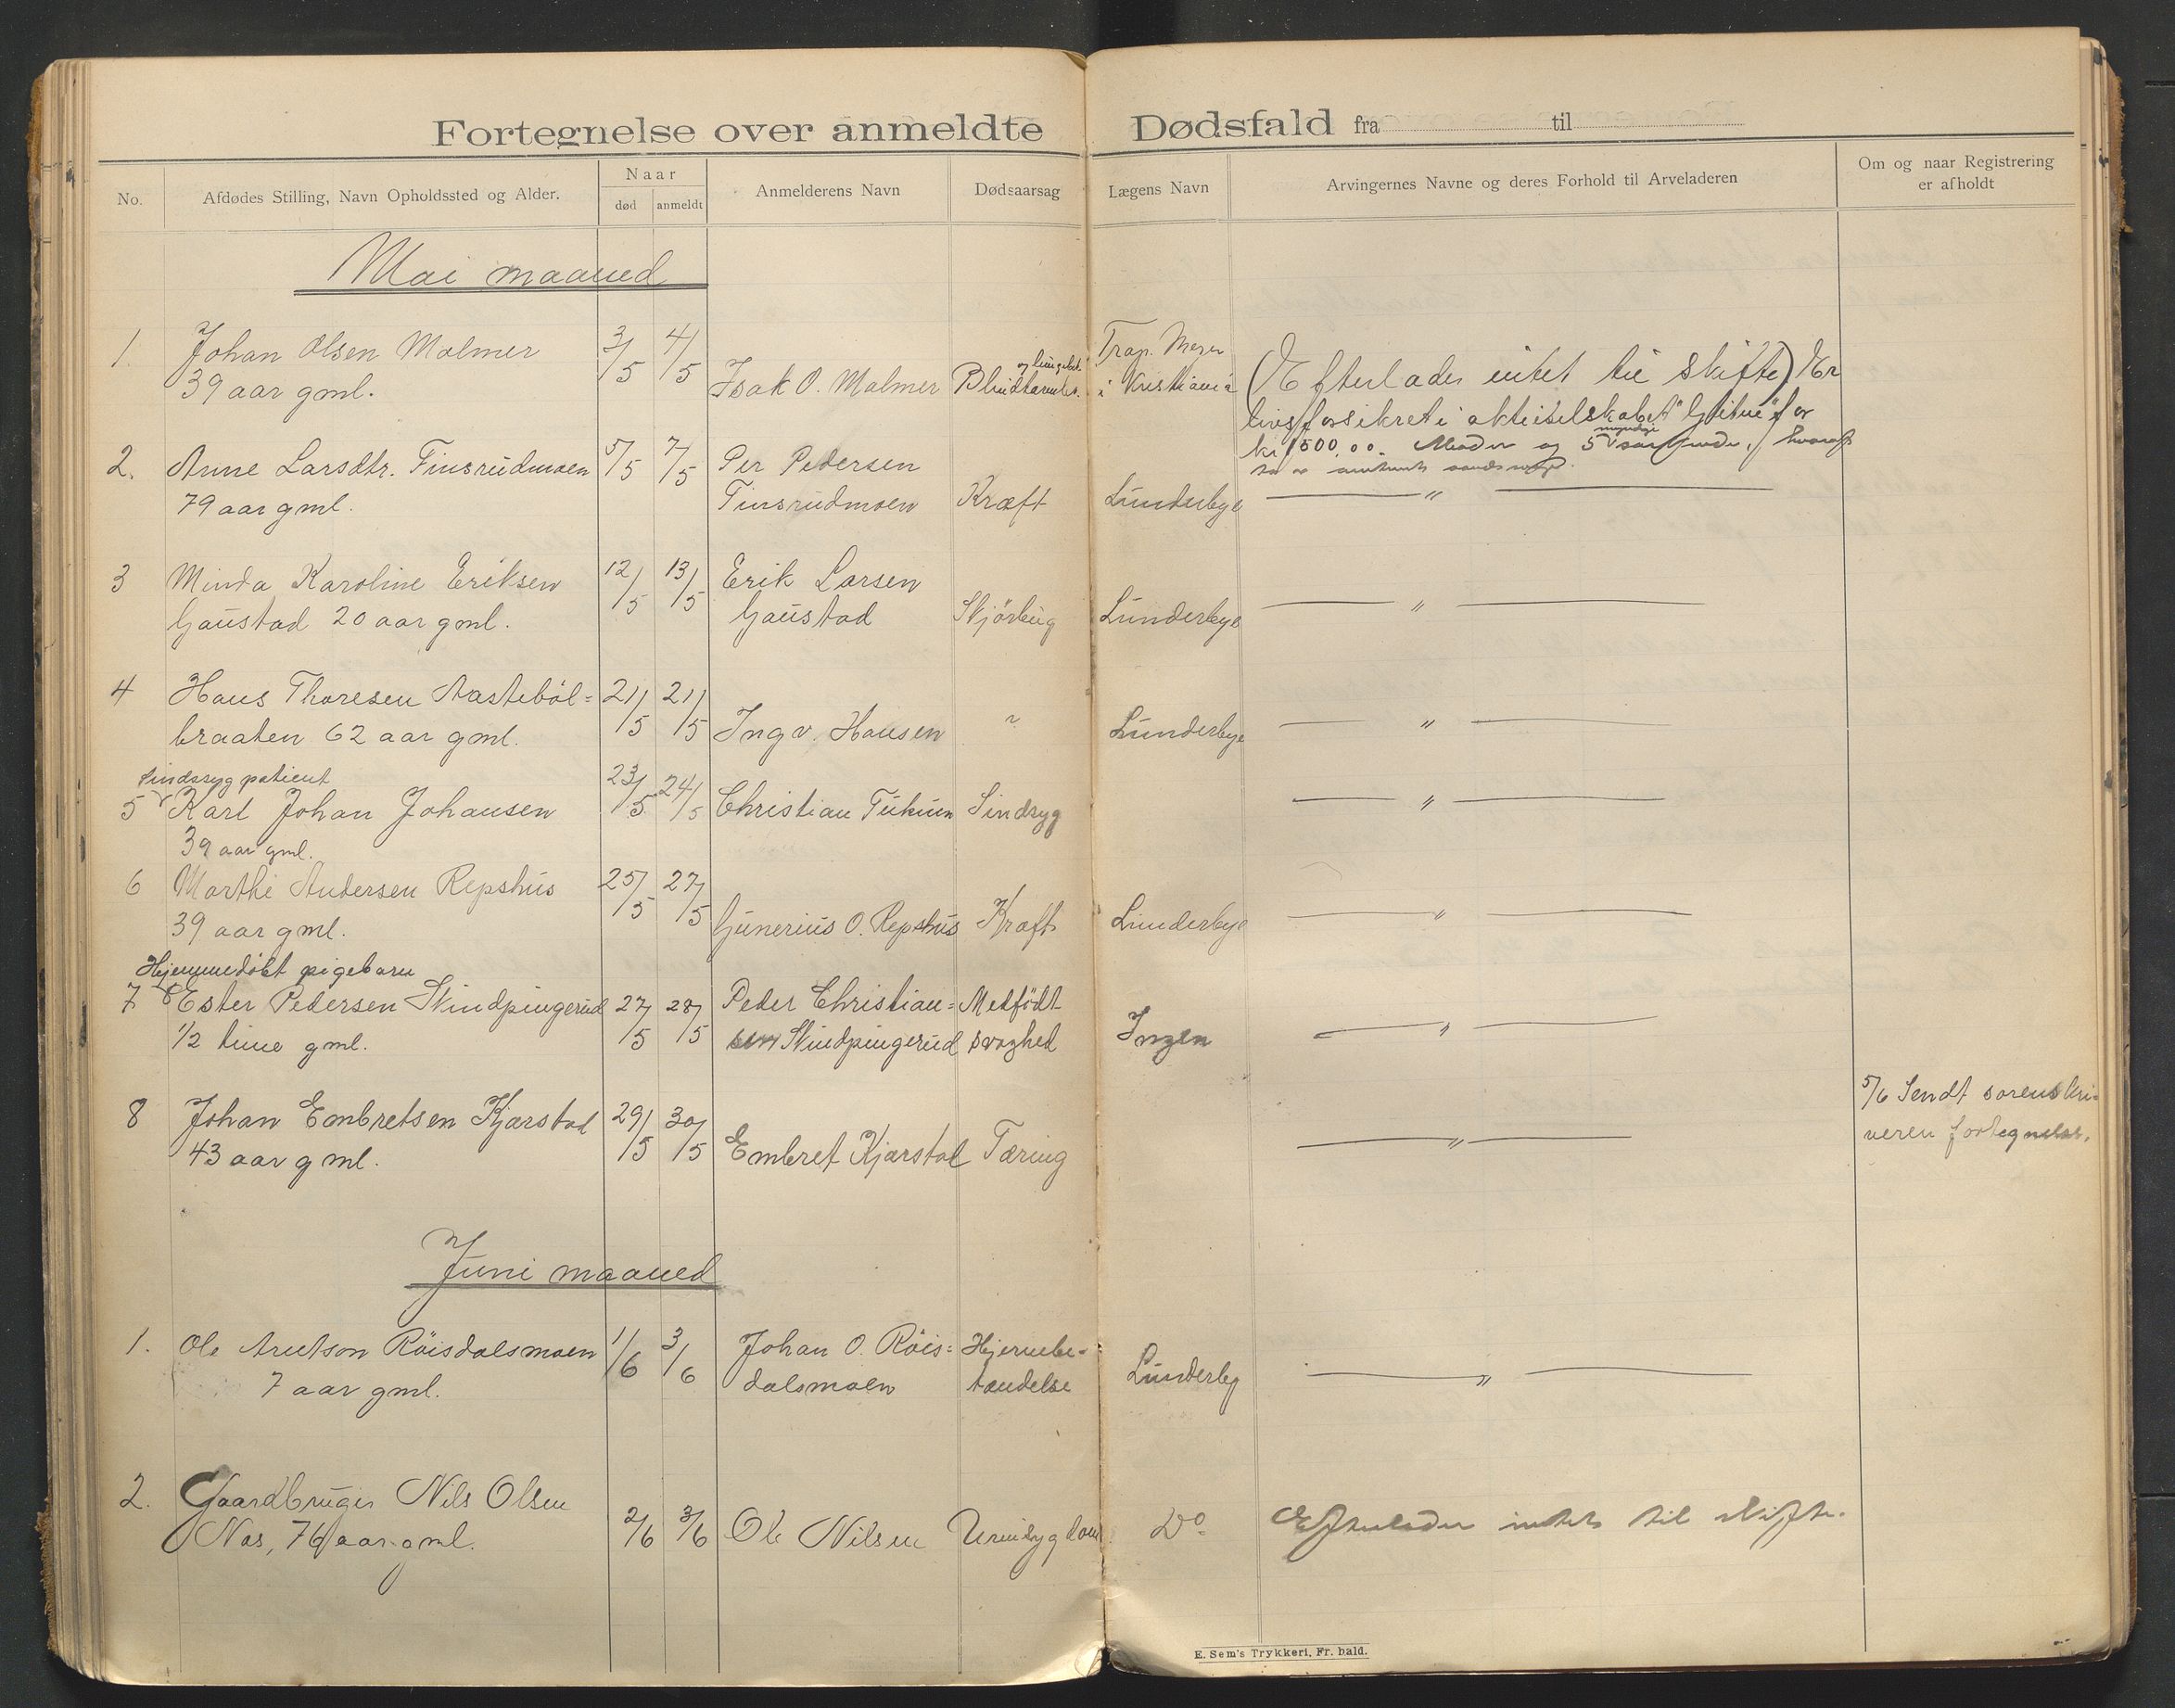 Fortegnelse over anmeldte Dødsfald fra til
No.
Afdødes Stilling, Navn Opholdssted og Alder.
Naar
død
anmeldt
Anmelderens Navn
Dødsaarsag
Lægens Navn
Arvingernes Navne og deres Forhold til Arveladeren
Om og naar Registrering
er afholdt
Mai maaned
1. Johan Olsen Malmer 3/5 4/5
39 aar gml.
Isak O. Malmer
og
Blindtarmbet.
Trap. Meyer
i Kristiania
(Efterlader intet til skifte) Er
livsforsikret i aktieselskabet "Gjitne" for
kr 1500,00. Moder og 5 myndige
2. Anne Larsdtr. Tinsrudmoen 5/5 7/5 Per Pedersen
79 aar gml. Tinsrudmoen Kræft Lunderbye — " —
3 Minda Karoline Eriksen 12/5 13/5 Erik Larsen
Gaustad 20 aar gml. Gaustad Lunderbye — " —
4 Hans Thoresen Aastebøl=
21/5 21/5
braaten 62 aar gml. Ingv. Hansen " Lunderbye — " —
Sindssyg patient
5 Karl Johan Johansen 23/5 24/5 Christian Tukun Sindsyg — " —
39 aar gml.
6 Marthe Andersen Repshus 25/5 27/5
39 aar gml. Gunerius O. Repshus Kræft Lunderbye — " —
Hjemmedøbt pigebarn
7 Ester Pedersen Skindpungerud 27/5 28/5 Peder Christian= Medfødt
1/2 time gml. sen Skindpungerud svaghed Ingen — " —
8 Johan Embretsen Kjærstad 29/5 30/5
43 aar gml. Embret Kjærstad Tæring — " —
5/6 Sendt sorenskri-
veren fortegnelse.
Juni maaned
1. Ole Arntson Röisdalsmoen 1/6 3/6 Johan O. Röis= Hjernebe-
7 aar gml. dalsmoen tændelse Lunderby — " —
2. Gaardbruger Nils Olsen
Næs, 76 aar gml. 2/6 3/6 Ole Nilsen Do. Efterlader intet til skifte.
E. Sem's Trykkeri, Fr. hald.